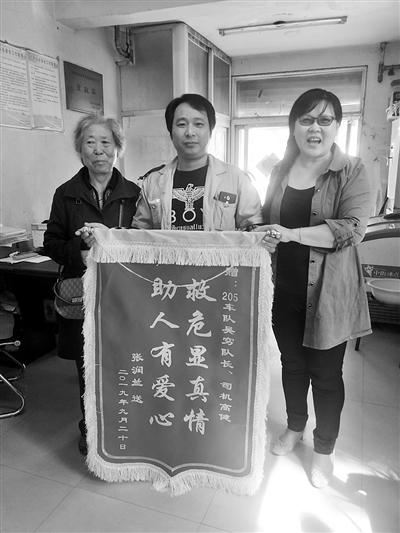 赠：205车队吴穷队长、司机高健
救危显真情
助人有爱心
张润兰 送
二〇一九年九月二十日